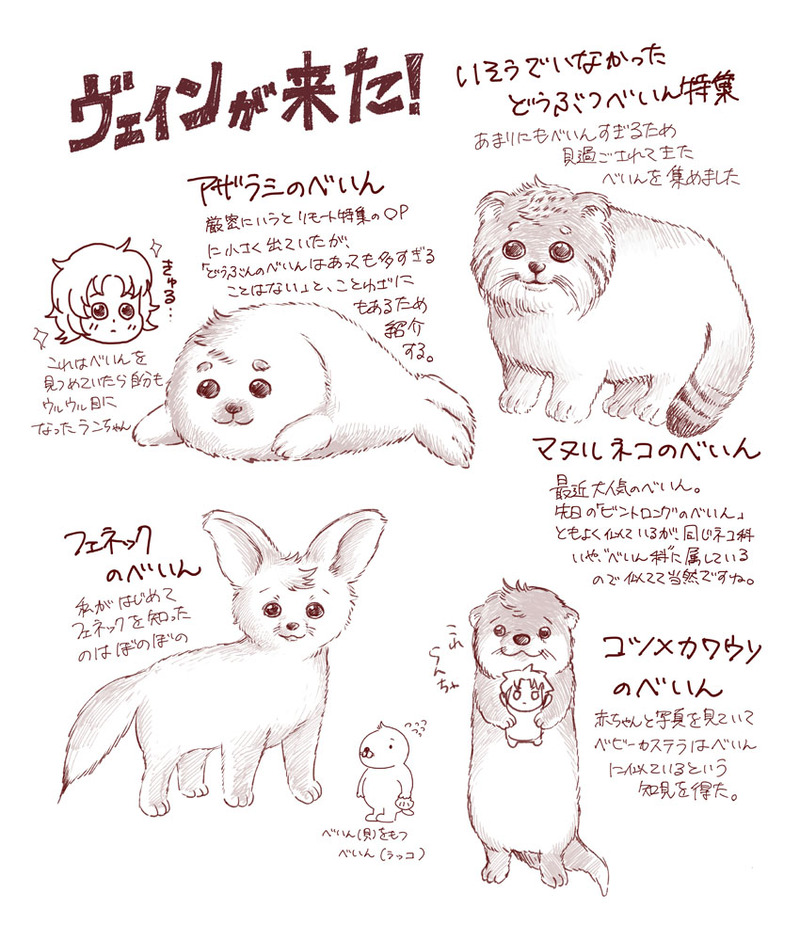 ヴェインが来た!
いそうでいなかった
どうぶつべいん特集
あまりにもべいんすぎるため
見過ごされてきた
べいんを集めました
アザラシのべいん
厳密にいうとリモート特集のOP
に小さく出ていたが、
「どうぶつのべいんはあっても多すぎる
ことはない」と、ことわざに
もあるため
紹介
する。
きゅる…
これはべいんを
見つめていたら自分も
ウルウル目に
なったランちゃん
マヌルネコのべいん
最近大人気のべいん。
先日の「ビントロングのべいん」
ともよく似ているが、同じネコ科
いや、"べいん科"に属している
ので似てて当然ですね。
フェネック
のべいん
私がはじめて
フェネックを知った
のはぼのぼの
べいん(貝)をもつ
べいん(ラッコ)
これ
らんちゃ
コツメカワウソ
のべいん
赤ちゃんと写真を見ていて
ベビーカステラはべいん
に似ているという
知見を得た。